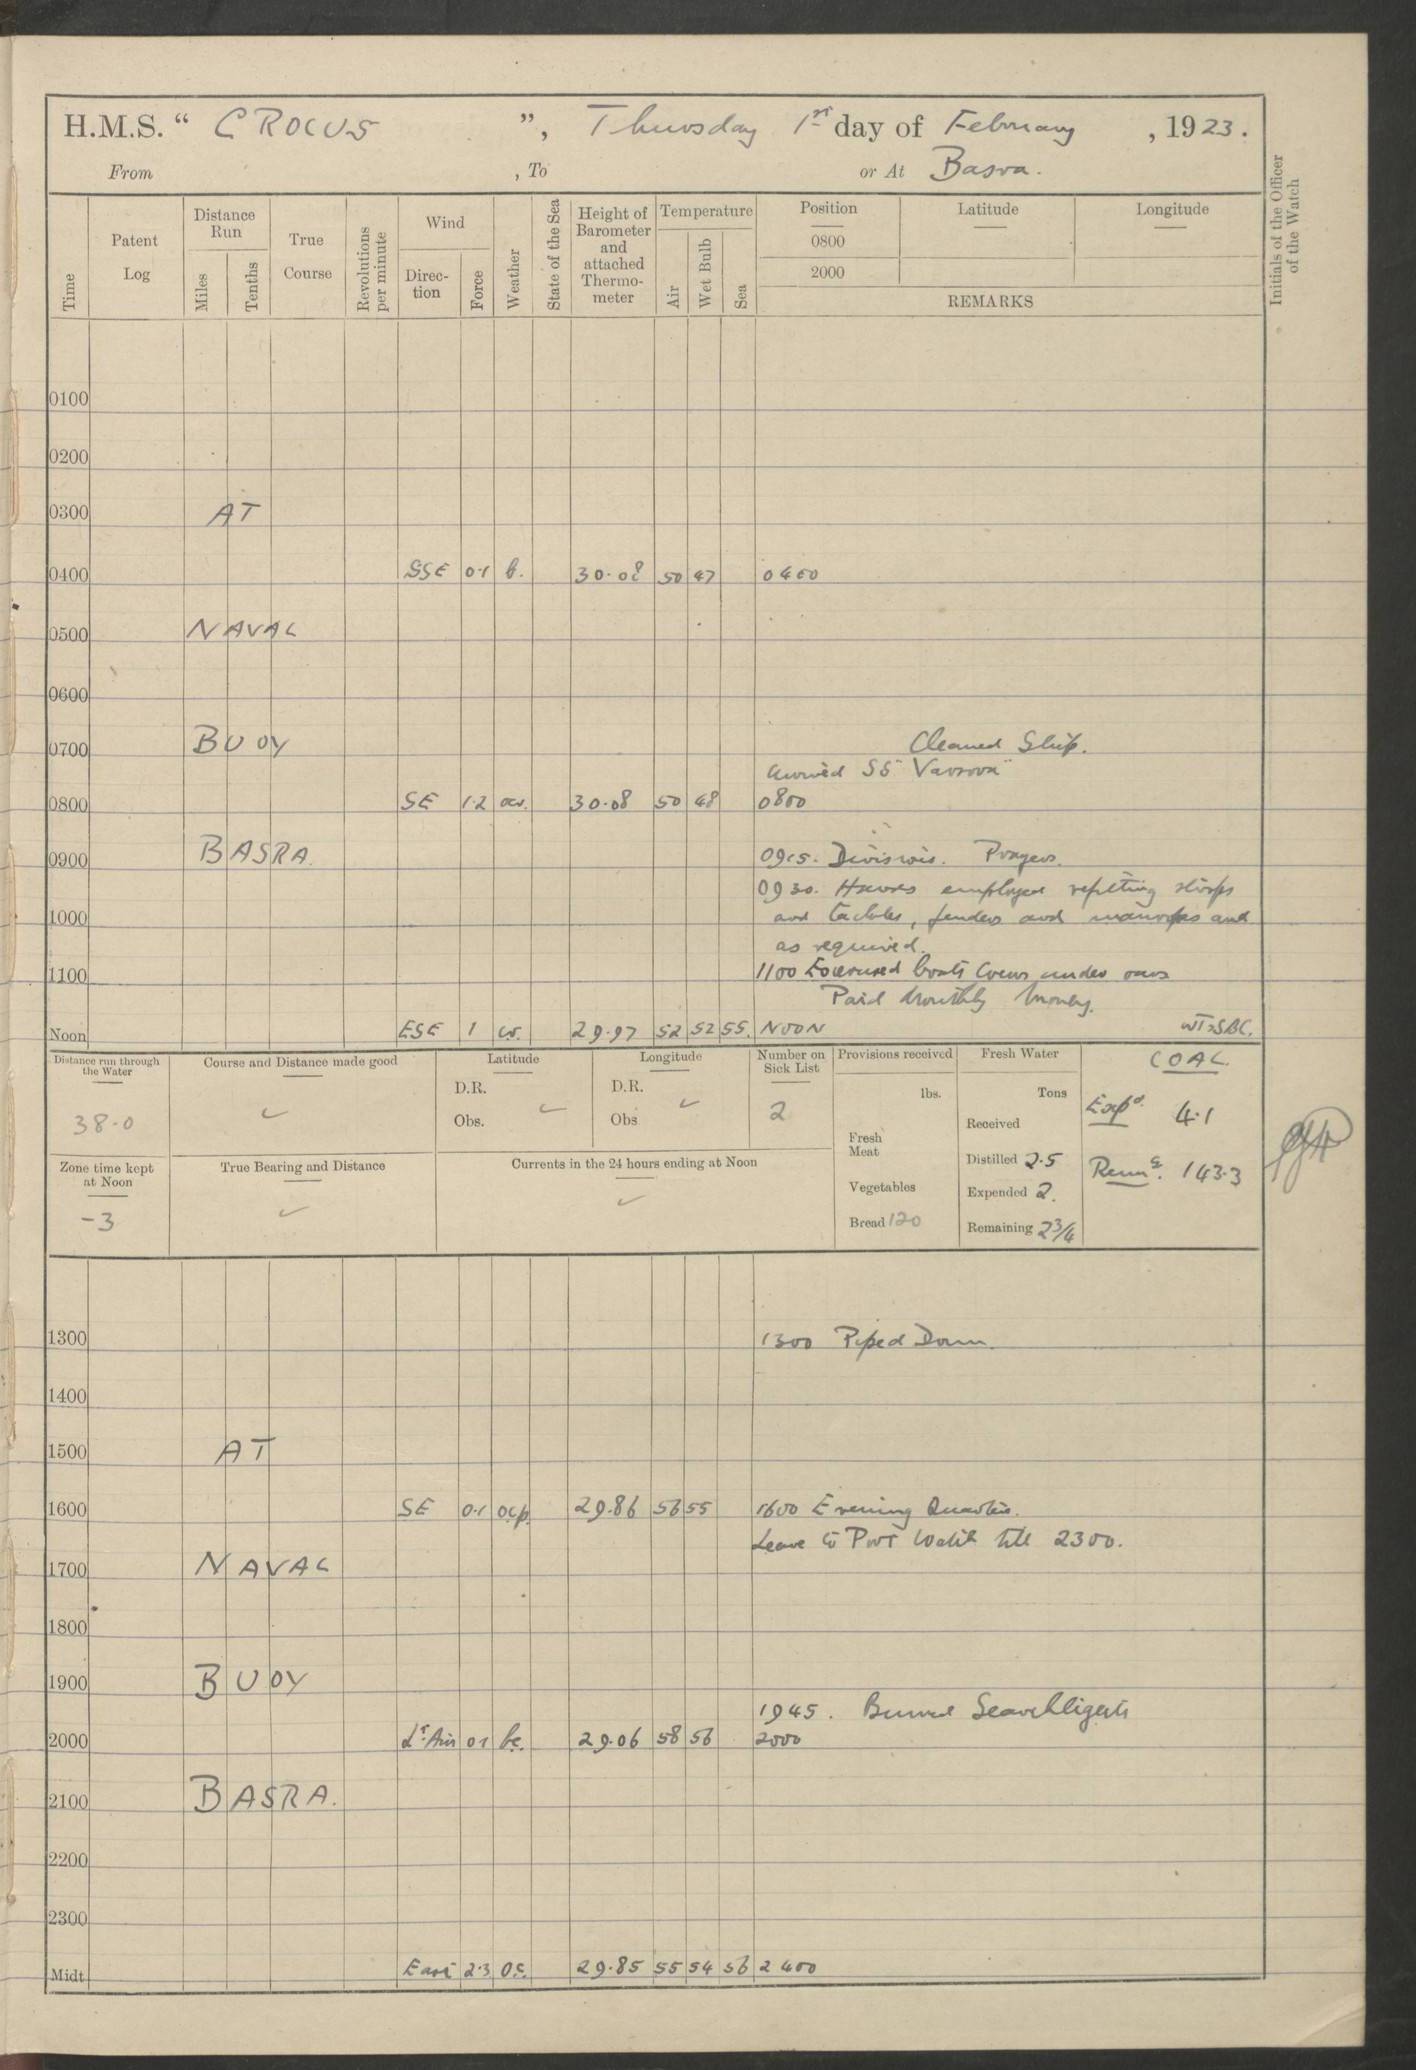 H.M.S. “ CROCUS ”, Thursday 1st day of February , 1923.
From , To or At Basra.
Time
Patent Log
Distance Run
Miles
Tenths
True Course
Revolutions per minute
Wind
Direc-tion
Force
Weather
State of the Sea
Height of Barometer and attached Thermo-meter
Temperature
Air
Wet Bulb
Sea
Position Latitude Longitude
0800
2000
REMARKS
Initials of the Officer of the Watch
0100
0200
0300 AT
0400 SSE 0·1 b. 30·08 50 47 0400
0500 NAVAL
0600
0700 BUOY Cleaned Ship.
Arrived SS "Varsova"
0800 SE 1·2 30·08 50 48 0800
0900 BASRA. 0915. Divisions. Prayers.
0930. Hands employed refitting strops
1000 and tackles, fenders and manropes and
as required.
1100 1100 Exercised boats crews under oars
Paid Monthly Money.
Noon ESE 1 29·97 52 52 55. NOON
Distance run through the Water
38·0
Course and Distance made good
Latitude
D.R.
Obs.
Longitude
D.R.
Obs
Number on Sick List
2
Provisions received
lbs.
Fresh Meat
Vegetables
Bread 120
Fresh Water
Tons
Received
Distilled 2·5
Expended 2.
Remaining 2 3/4
COAL.
Expd. 4·1
Remg. 143·3
Zone time kept at Noon
-3
True Bearing and Distance
Currents in the 24 hours ending at Noon
1300 1300 Piped Down.
1400
1500 AT
1600 SE 0·1 ocp. 29·86 56 55 1600 Evening Quarters.
Leave to Port Watch till 2300.
1700 NAVAL
1800
1900 BUOY
1945. Burned Searchlights
2000 Lt. Airs 0·1 bc. 29·06 58 56 2000
2100 BASRA.
2200
2300
Midt East 2·3 o.c. 29·85 55 54 56 2400